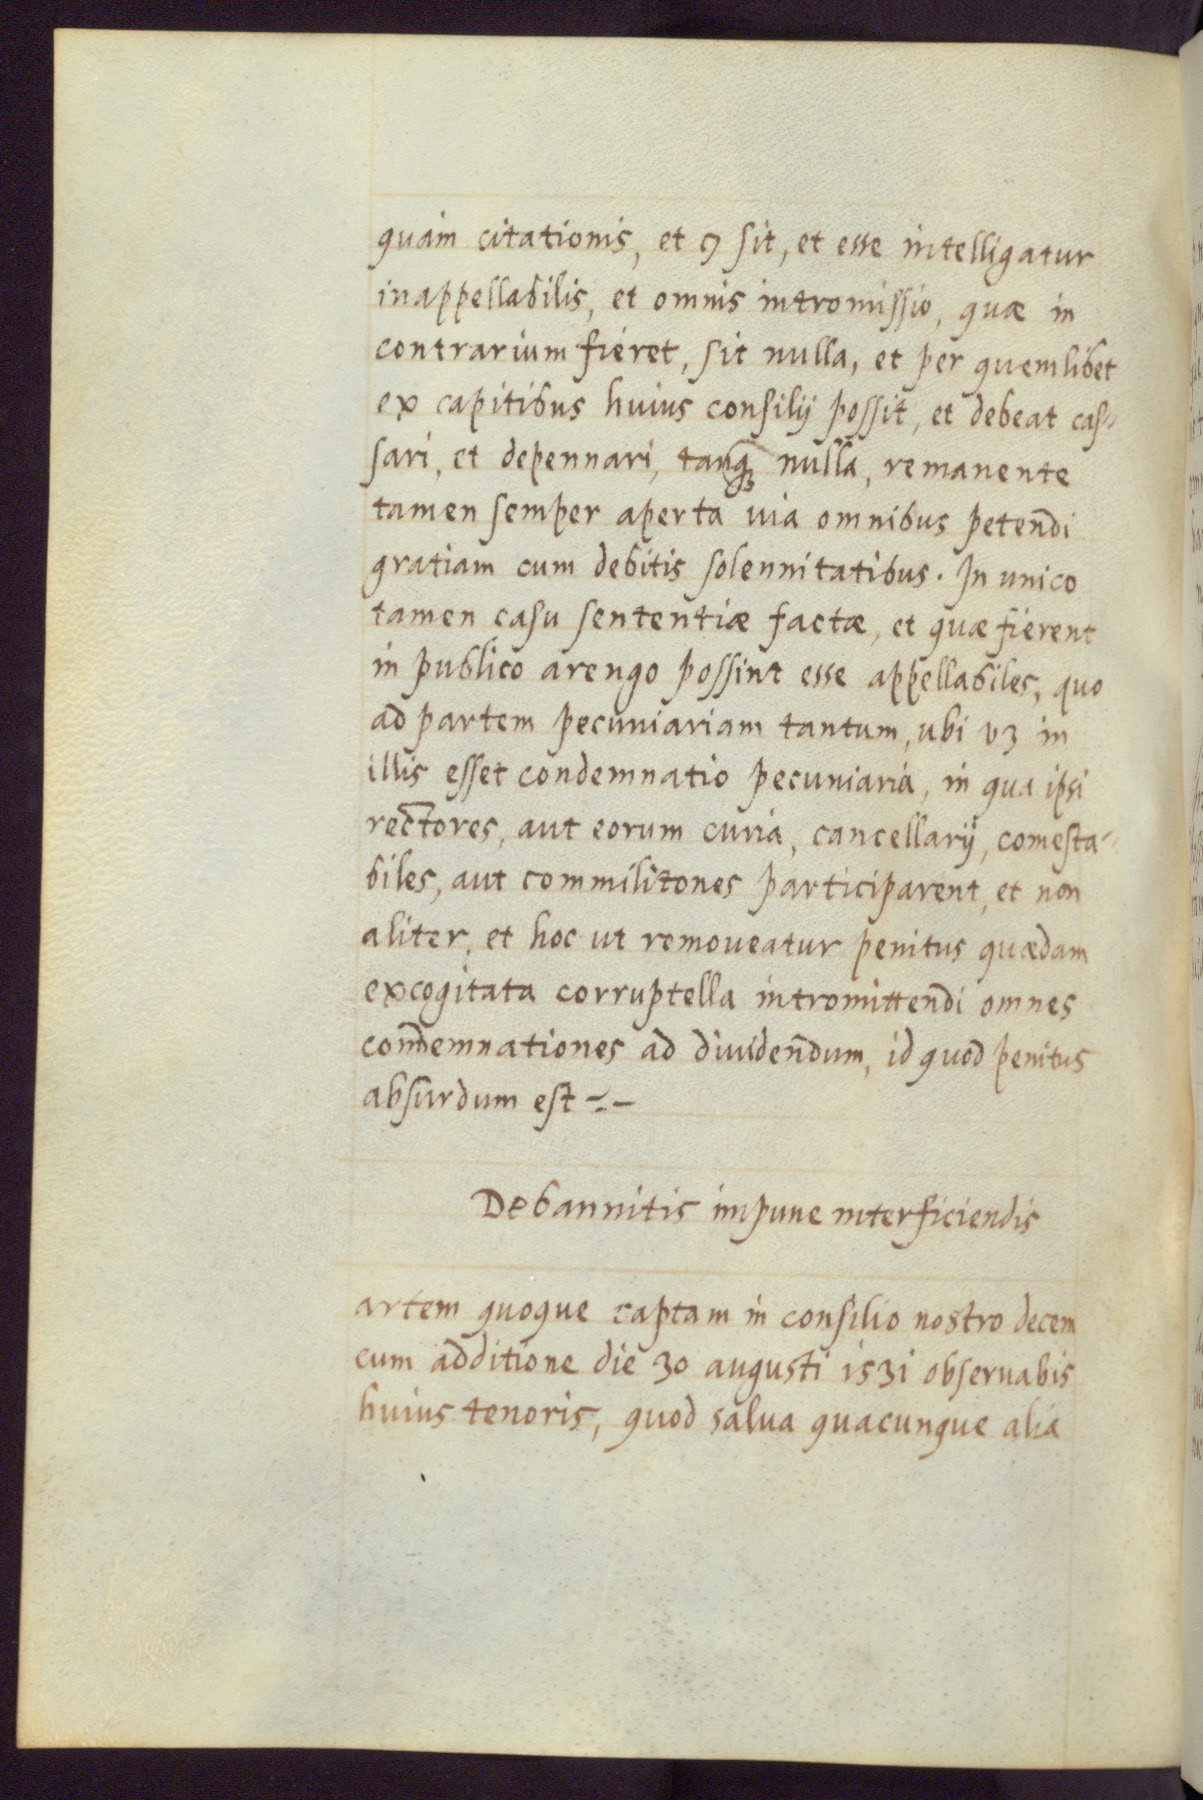 quam citationis, et ꝯ sit, et esse intelligatur
inappellabilis, et omnis intromissio, quæ in
contrarium fieret, sit nulla, et per quemlibet
ex capitibus huius consilij possit, et debeat cas-
sari, et depennari, tanqȝ nulla, remanente
tamen semper aperta uia omnibus petendi
gratiam cum debitis solennitatibus. In unico
tamen casu sententiæ factæ, et quæ fierent
in publico arengo possint esse appellabiles, quo
ad partem pecuniariam tantum, ubi vȝ in
illis esset condemnatio pecuniaria, in qua ipsi
rectores, aut eorum curia, cancellarij, comesta-
biles, aut commilitones participarent, et non
aliter, et hoc ut remoueatur penitus quædam
excogitata corruptella intromittendi omnes
condemnationes ad diuidendum, id quod penitus
absurdum est ~.-
De bannitis impune interficiendis
artem quoque captam in consilio nostro decem
cum additione die 30 augusti 1531 obseruabis
huius tenoris, quod salua quacunque alia